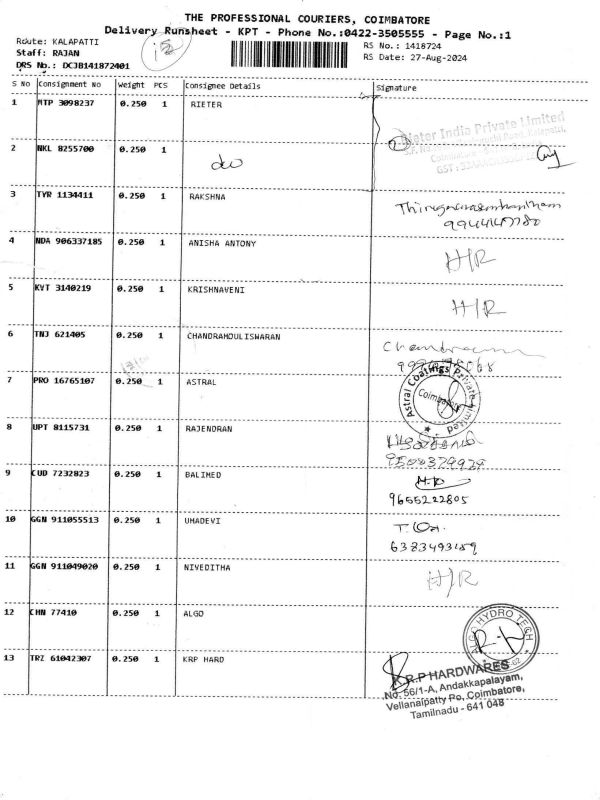 THE PROFESSIONAL COURIERS, COIMBATORE
Delivery Runsheet - KPT - Phone No.:0422-3505555 - Page No.:1
Route: KALAPATTI
Staff: RAJAN
DRS No.: DCJB141872401
RS No.: 1418724
RS Date: 27-Aug-2024
S No Consignment No Weight PCS Consignee Details Signature
1 MTP 3098237 0.250 1 RIETER
Rieter India Private Limited
2 NKL 8255700 0.250 1 do
3 TYR 1134411 0.250 1 RAKSHNA
4 NDA 906337185 0.250 1 ANISHA ANTONY H/R
5 KVT 3140219 0.250 1 KRISHNAVENI H/R
6 TNJ 621405 0.250 1 CHANDRAMOULISWARAN
7 PRO 16765107 0.250 1 ASTRAL
Astral Coatings Private Limited
Coimbatore
8 UPT 8115731 0.250 1 RAJENDRAN
9 CUD 7232823 0.250 1 BALIMED
9655222805
10 GGN 911055513 0.250 1 UMADEVI
6383493159
11 GGN 911049020 0.250 1 NIVEDITHA H/R
12 CHN 77410 0.250 1 ALGO
ALGO HYDRO TECH
13 TRZ 61042307 0.250 1 KRP HARD
K.R.P HARDWARES
No. 56/1-A, Andakkapalayam,
Vellanaipatty Po, Coimbatore,
Tamilnadu - 641 048